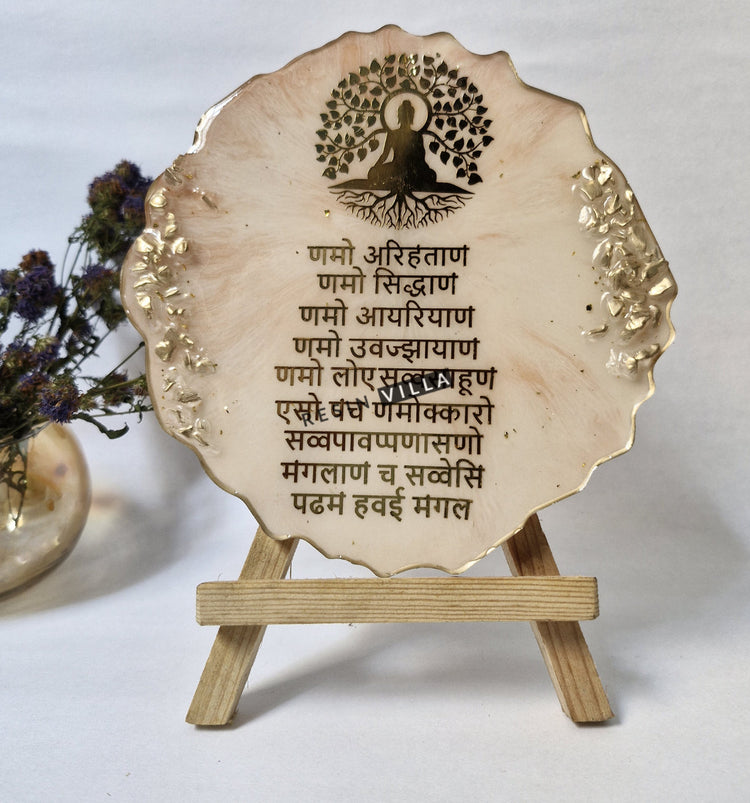 णमो अरिहंताणं
णमो सिद्धाणं
णमो आयरियाणं
णमो उवज्झायाणं
णमो लोए
एसो पंच णमोक्कारो
सव्वपावप्पणासणो
मंगलाणं च सव्वेसिं
पढमं हवई मंगल
RESIN VILLA